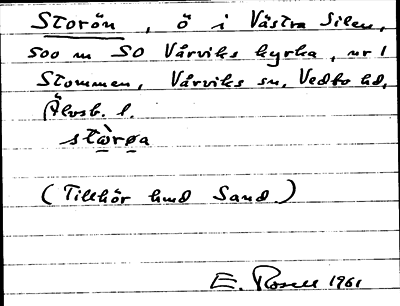 Storön, ö i Västra Silen,
500 m SO Vårviks kyrka, nr 1
Stommen, Vårviks sn, Vedbo hd,
Älvsb. l.
(Tillhör hmd Sand)
E. Rosell 1961